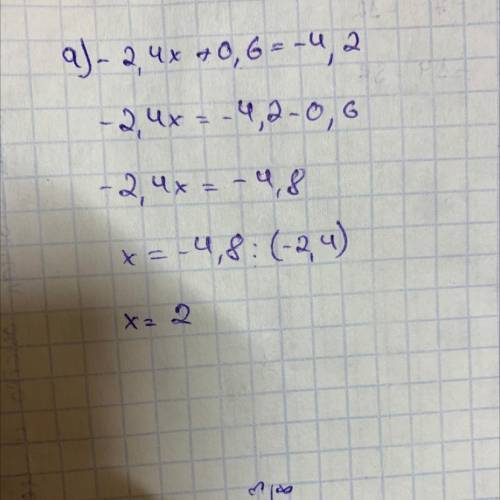 а) - 2,4x + 0,6 = -4,2
-2,4x = -4,2-0,6
-2,4x = -4,8
x = -4,8 : (-2,4)
x = 2